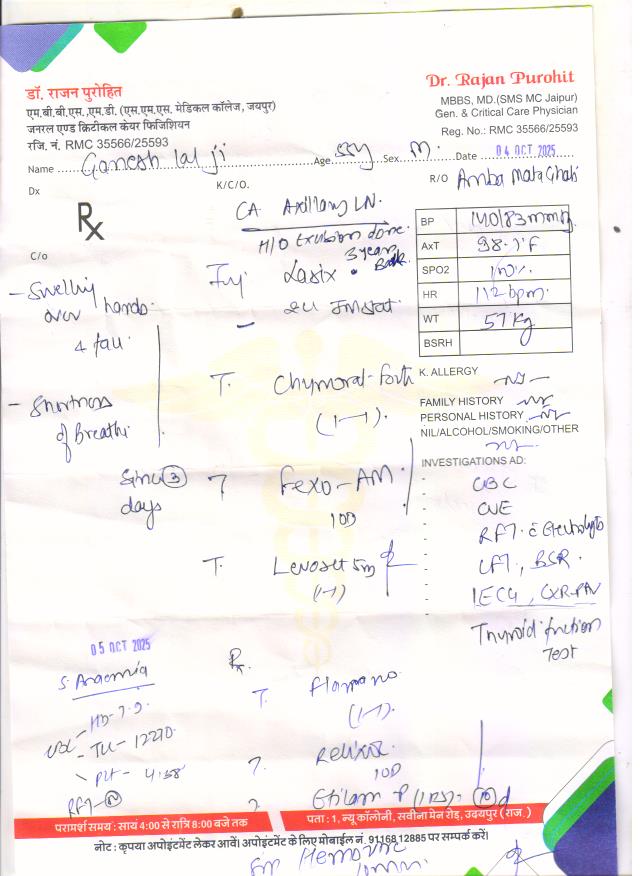 डॉ. राजन पुरोहित
एम.बी.बी.एस.,एम.डी. (एस.एम.एस. मेडिकल कॉलेज, जयपुर)
जनरल एण्ड क्रिटीकल केयर फिजिशियन
रजि. नं. RMC 35566/25593
Dr. Rajan Purohit
MBBS, MD.(SMS MC Jaipur)
Gen. & Critical Care Physician
Reg. No.: RMC 35566/25593
Name Ganesh lal ji Age 55y Sex M. Date 04 OCT 2025
Dx K/C/O. R/O Amba Mata Ghati
Rx
CA Axillary LN.
H/O Excision done
3 years Back
BP 140/83mmHg
AxT 98.1°F
SPO2 100%
HR 112 bpm
WT 57 Kg
BSRH
C/o
- Swelling over hands
& face
- Shortness of Breath
Since 3 days
Inj Lasix
2cc IM stat
T. Chymoral-forth
(1-1)
T Fexo-AM
10D
T. Levocet 5mg
(1-1)
K. ALLERGY
FAMILY HISTORY
PERSONAL HISTORY
NIL/ALCOHOL/SMOKING/OTHER
INVESTIGATIONS AD:
CBC
CUE
RFT. c Electrolytes
LFT, BSR
ECG, CXR-PAV
Thyroid function
Test
05 OCT 2025
S. Anaemia
CBC - Hb-7.9
- TLC- 12270
- Plt- 4.58
RFT- N
Rx.
T.
(1-1)
T.
10D
T. Etilam P
परामर्श समय : सायं 4:00 से रात्रि 8:00 बजे तक
पता : 1, न्यू कॉलोनी, सवीना मेन रोड़, उदयपुर (राज.)
नोट : कृपया अपोइंटमेंट लेकर आवें। अपोइंटमेंट के लिए मोबाईल नं. 91168 12885 पर सम्पर्क करें।